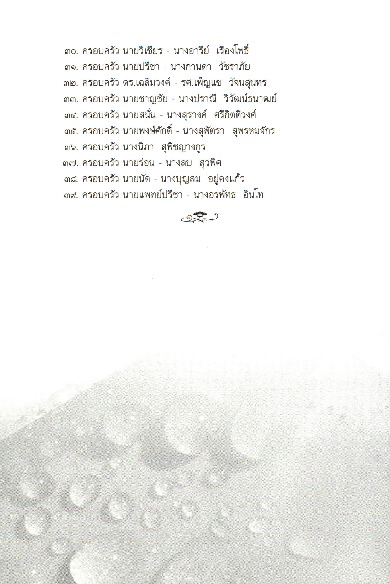 ๓๐. ครอบครัว นายวิเชียร - นางอารีย์ เรืองโพธิ์
๓๑. ครอบครัว นายปรีชา นางกานดา วัชราภัย
๓๒. ครอบครัว ดร.เฉลิมวงศ์ - รศ.เพ็ญแข วัจนสุนทร
๓๓. ครอบครัว นายชาญชัย - นางปราณี วิวัฒน์ธนาฒย์
๓๔. ครอบครัว นายสนั่น - นางสุรางค์ ศรีกิตติวงศ์
๓๕. ครอบครัว นายพงษ์ศักดิ์ - นางสุพัตรา สุพรหมจักร
๓๖. ครอบครัว นางนิภา สุพิชญางกูร
๓๗. ครอบครัว นายร่อน - นางลบ สุวพิศ
๓๘. ครอบครัว นายนัด - นางบุญสม อยู่คงแก้ว
๓๙. ครอบครัว นายแพทย์ปรีชา - นางอรพัทธ อินโท